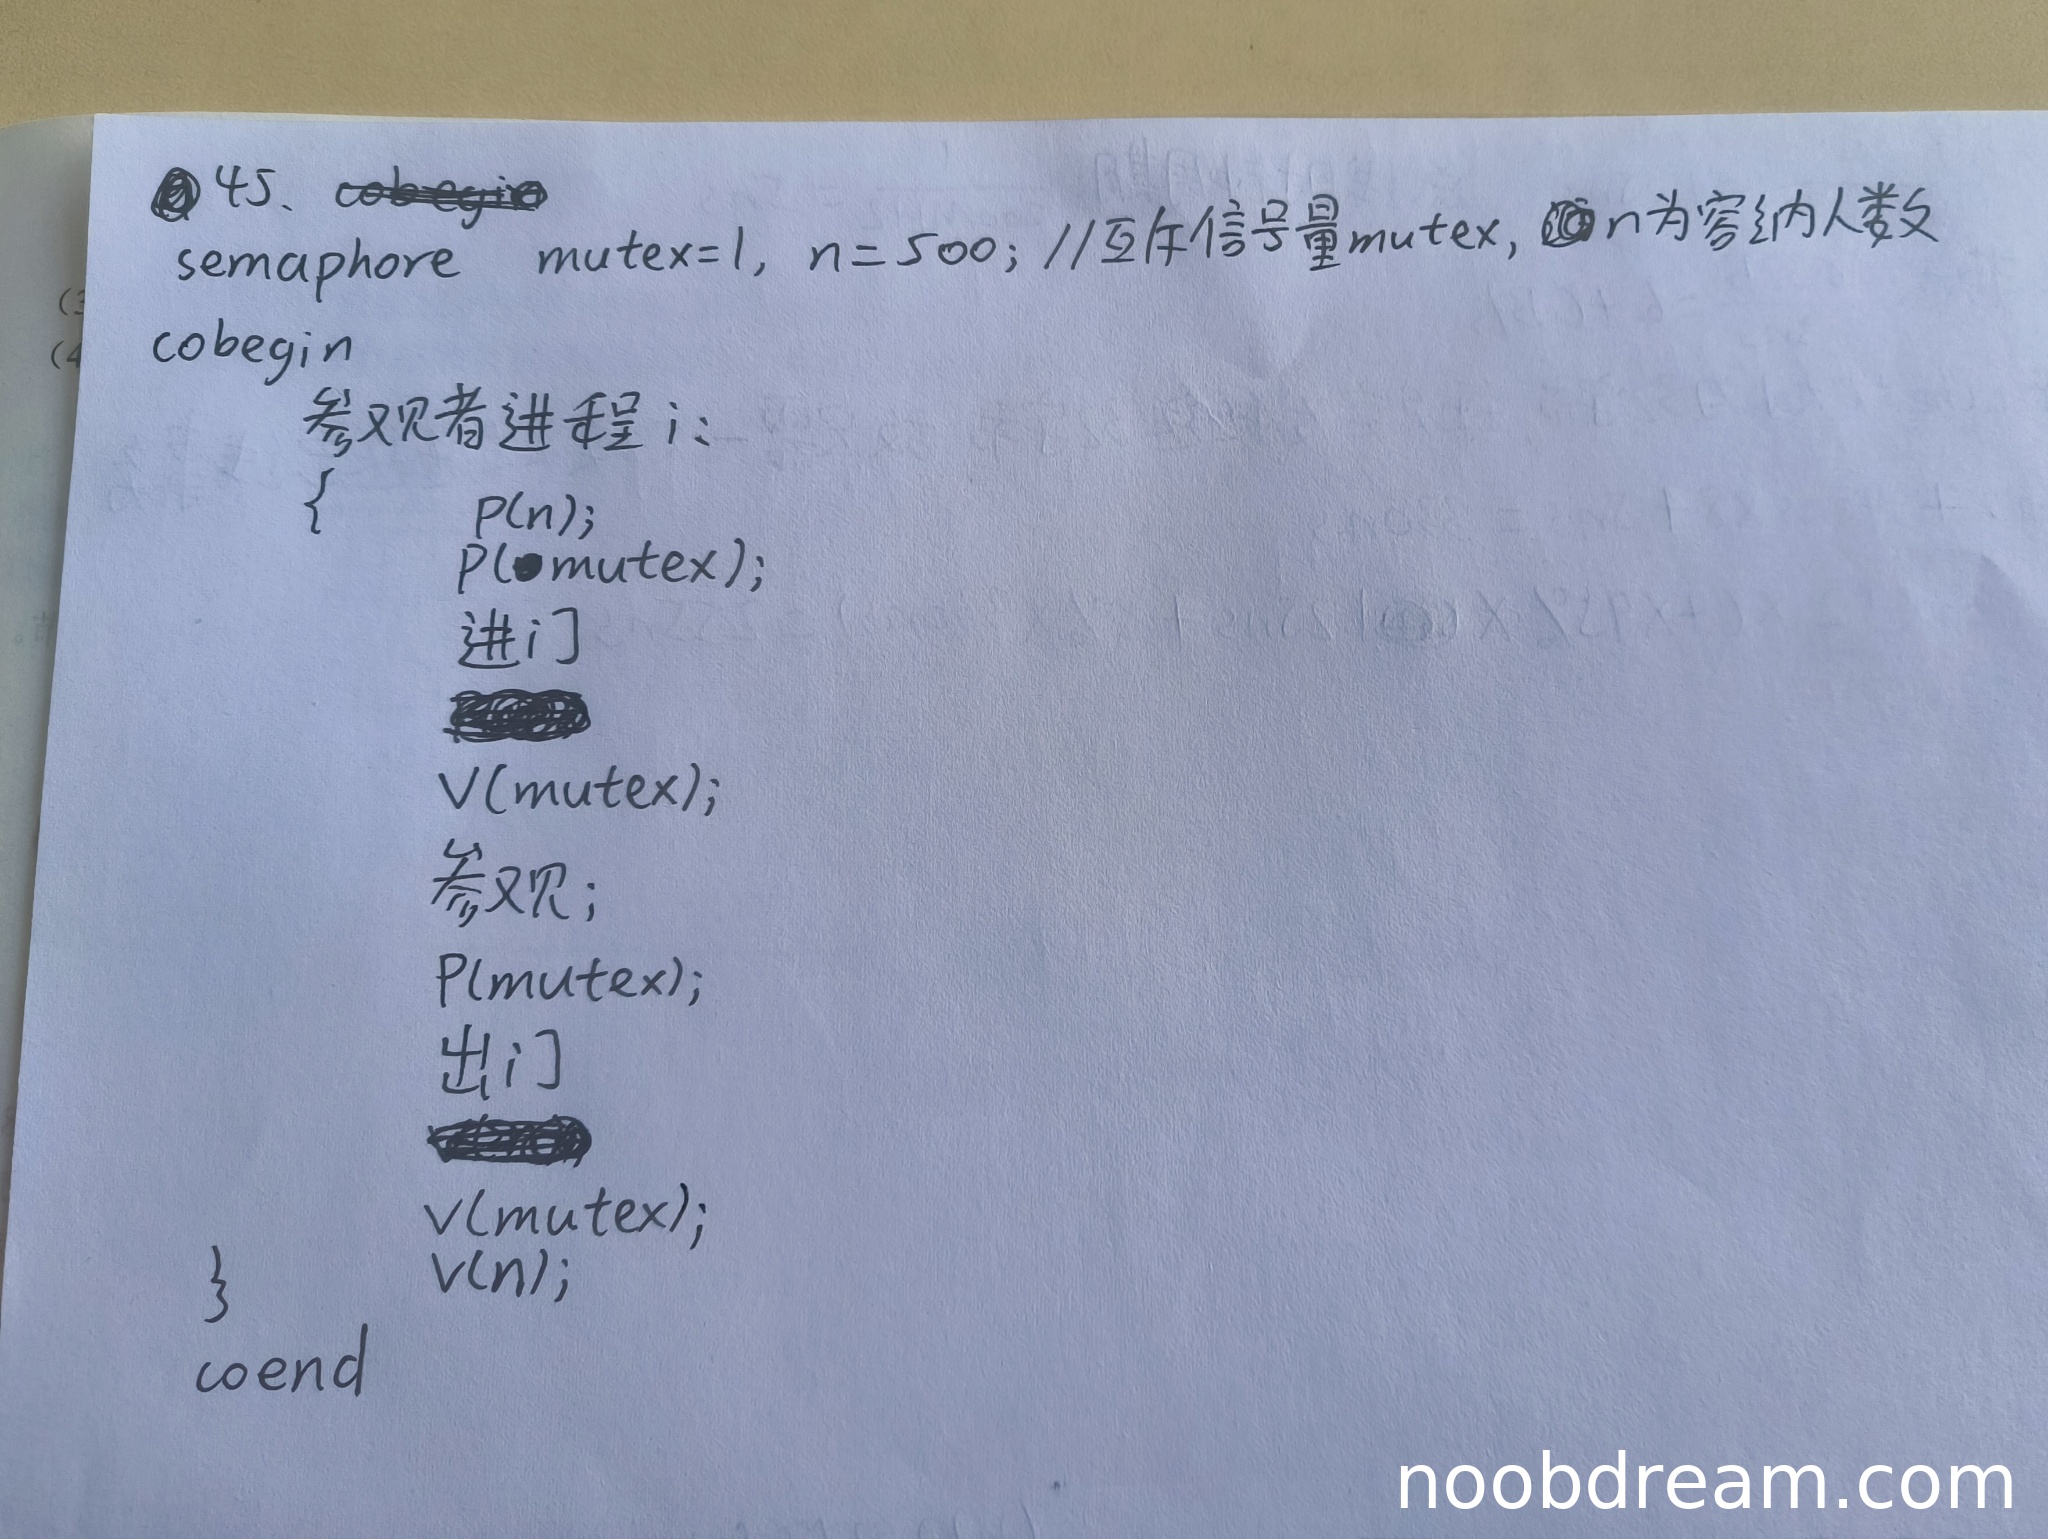 45、
semaphore mutex=1, n=500; //互斥信号量mutex, n为容纳人数
cobegin
参观者进程i:
{ P(n);
P(mutex);
进门
V(mutex);
参观;
P(mutex);
出门
V(mutex);
} V(n);
coend
noobdream.com